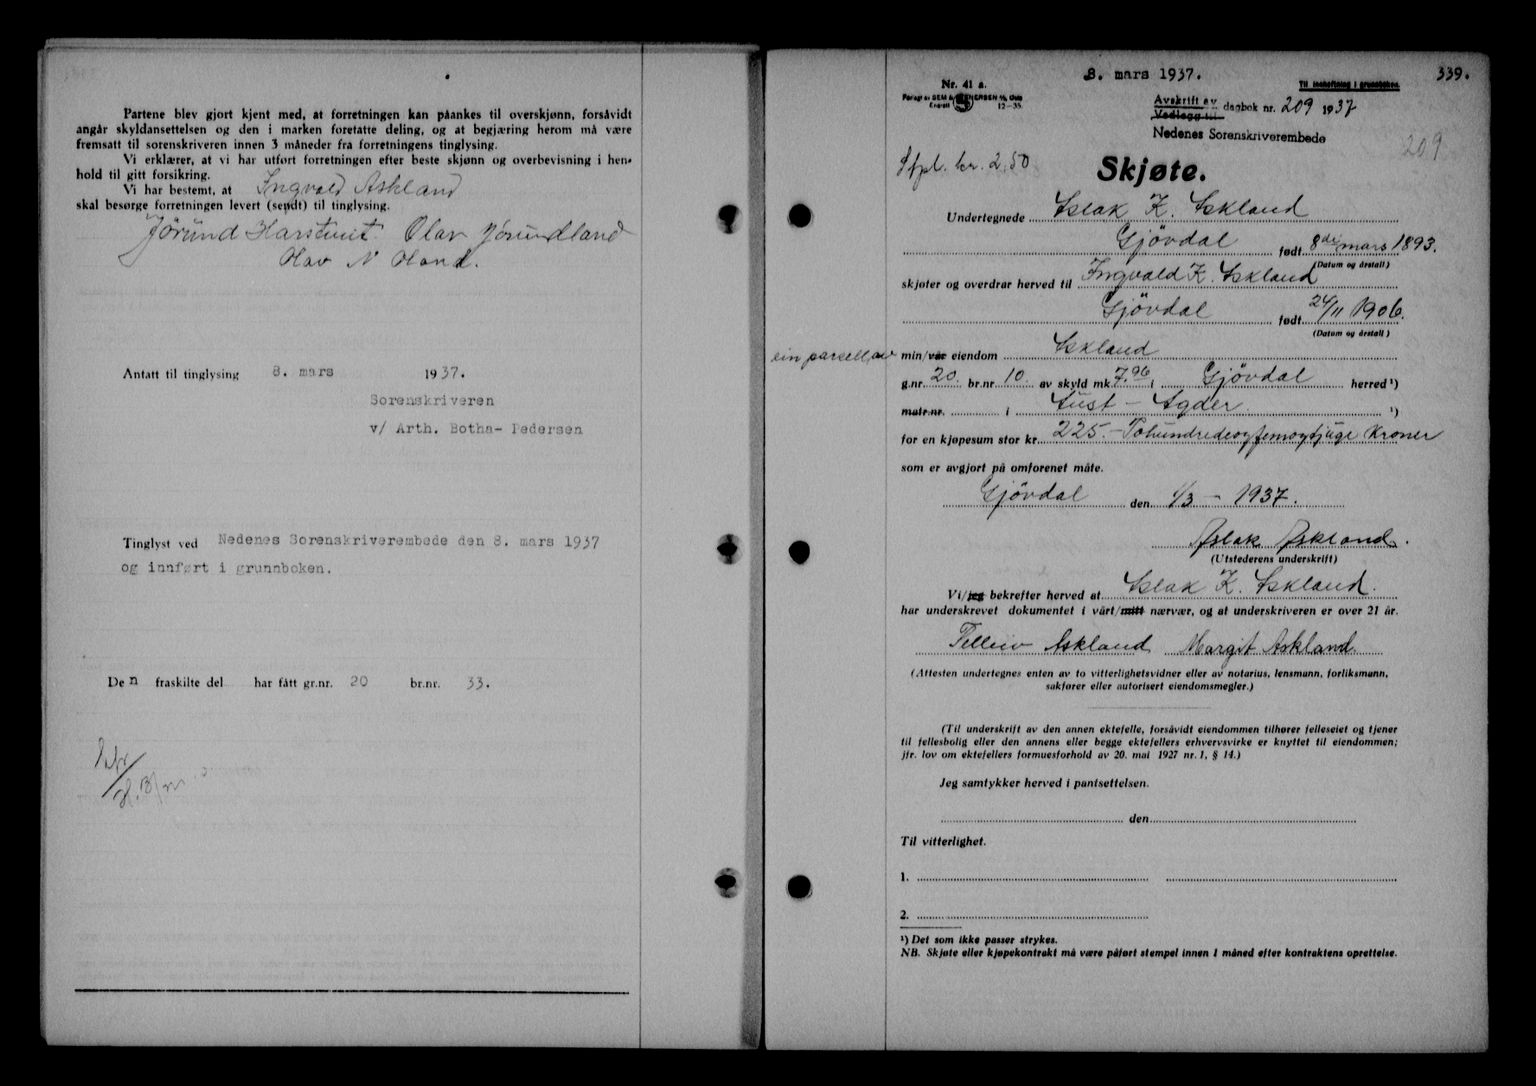 Partene blev gjort kjent med, at forretningen kan påankes til overskjønn, forsåvidt
angår skyldansettelsen og den i marken foretatte deling, og at begjæring herom må være
fremsatt til sorenskriveren innen 3 måneder fra forretningens tinglysing.
Vi erklærer, at vi har utført forretningen efter beste skjønn og overbevisning i hen-
hold til gitt forsikring.
Vi har bestemt, at Ingvald Askland
skal besørge forretningen levert (sendt) til tinglysing.
Jörund Harstveit Olav Jörundland
Olav N Håland.
Antatt til tinglysing 8. mars 1937.
Sorenskriveren
v/ Arth. Botha- Pedersen
Tinglyst ved Nedenes Sorenskriverembede den 8. mars 1937
og innført i grunnboken.
Den fraskilte del har fått gr.nr. 20 br.nr. 33.
8. mars 1937.
Til innheftning i grunnboken.
339.
Nr. 41 a.
Forlagt av SEM & STENERSEN A/S, Oslo
12-35.
Avskrift av
Vedlegg til
dagbok nr. 209 1937
Nedenes Sorenskriverembede
209
Stpl. kr. 2,50
Skjøte.
Undertegnede Aslak K. Askland
Gjövdal født 8de mars 1893.
(Datum og årstall)
skjøter og overdrar herved til Ingvald K. Askland
Gjövdal født 24/11 1906.
(Datum og årstall)
ein parsell av min/vår eiendom Askland
g.nr. 20. br.nr. 10. av skyld mk. 7.96 i Gjövdal herred ¹)
matr.nr. i Aust - Agder. ¹)
for en kjøpesum stor kr. 225.- Tohundredeogfemogtjuge Kroner
som er avgjort på omforenet måte.
Gjövdal den 1/3 - 1937.
Aslak Askland.
(Utstederens underskrift)
Vi/jeg bekrefter herved at Aslak K. Askland.
har underskrevet dokumentet i vårt/mitt nærvær, og at underskriveren er over 21 år.
Tellew Askland Margit Askland
(Attesten undertegnes enten av to vitterlighetsvidner eller av notarius, lensmann, forliksmann,
sakfører eller autorisert eiendomsmegler.)
(Til underskrift av den annen ektefelle, forsåvidt eiendommen tilhører felleseiet og tjener
til fellesbolig eller den annens eller begge ektefellers erhvervsvirke er knyttet til eiendommen;
jfr. lov om ektefellers formuesforhold av 20. mai 1927 nr. 1, § 14.)
Jeg samtykker herved i pantsettelsen.
den
Til vitterlighet.
1.
2.
¹) Det som ikke passer strykes.
NB. Skjøte eller kjøpekontrakt må være påført stempel innen 1 måned efter kontraktens oprettelse.